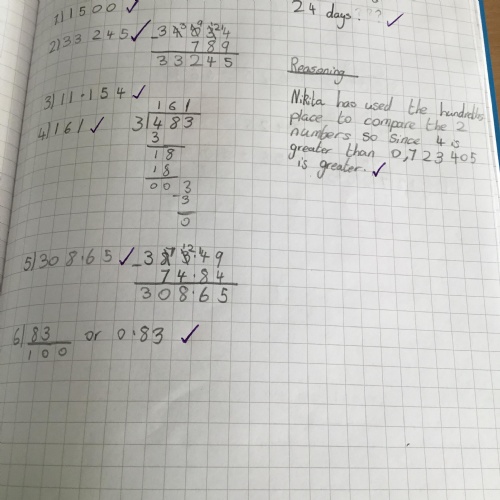 1) 1500 ✓
2) 33 245 ✓
34034
789
33245
3) 11.154 ✓
4) 161 ✓
161
3 483
3
18
18
003
-3
0
5) 308.65 ✓
- 383.49
74.84
308.65
6) 83
100
or 0.83 ✓
24 days? ✓
Reasoning
Nikita has used the hundreds
place to compare the 2
numbers so since 4 is
greater than 0,723 405
is greater. ✓